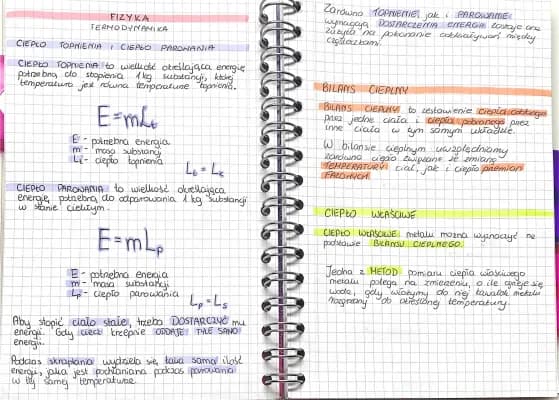 FIZYKA
TERMODYNAMIKA
CIEPŁO TOPNIENIA I CIEPŁO PAROWANIA
CIEPŁO TOPNIENIA to wielkość określająca energię
potrzebną do stopienia 1kg substancji, której
temperatura jest równa temperaturze topnienia.
E=mLt
E - potrzebna energia
m - masa substancji
Lt - ciepło topnienia
Lt = Lk
CIEPŁO PAROWANIA to wielkość określająca
energię potrzebną do odparowania 1 kg substancji
w stanie ciekłym.
E=mLp
E - potrzebna energia
m - masa substancji
Lp - ciepło parowania
Lp = Ls
Aby stopić ciało stałe, trzeba DOSTARCZYĆ mu
energii. Gdy ciecz krzepnie ODDAJE TYLE SAMO
energii.
Podczas skraplania wydziela się taka sama ilość
energii, jaka jest pochłaniana podczas parowania
w tej samej temperaturze.
Zarówno TOPNIENIE, jak i PAROWANIE
wymagają DOSTARCZENIA ENERGII. Zostaje ona
zużyta na pokonanie oddziaływań między
cząsteczkami.
BILANS CIEPLNY
BILANS CIEPLNY to zestawienie ciepła oddanego
przez jedne ciała i ciepła pobranego przez
inne ciała w tym samym układzie.
W bilansie cieplnym uwzględniamy
zarówno ciepło związane ze zmianą
TEMPERATURY ciał, jak i ciepło przemian
FAZOWYCH.
CIEPŁO WŁAŚCIWE
CIEPŁO WŁAŚCIWE metalu można wyznaczyć na
podstawie BILANSU CIEPLNEGO.
Jedna z METOD pomiaru ciepła właściwego
metalu polega na zmierzeniu, o ile ogrzeje się
woda, gdy włożymy do niej kawałek metalu
rozgrzany do określonej temperatury.